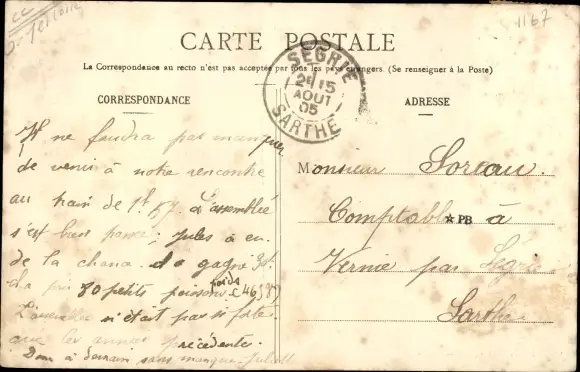 1167
CARTE POSTALE
La Correspondance au recto n'est pas acceptée par tous les pays étrangers. (Se renseigner à la Poste)
CORRESPONDANCE
ADRESSE
SEGRIE
2E 15
AOUT
05
SARTHE
Il ne faudra pas manquer
de venir à notre rencontre
au train de L'assemblée
s'est bien passée; Jules a eu
de la chance. il a gagné
il a pris 80 petits poissons poids
L'assemblée n'était pas si forte
que les années précédentes.
Donc à demain sans manquer. Juliette
Monsieur Soreau.
Comptable à
★PB
Vernie par Ségrie
Sarthe